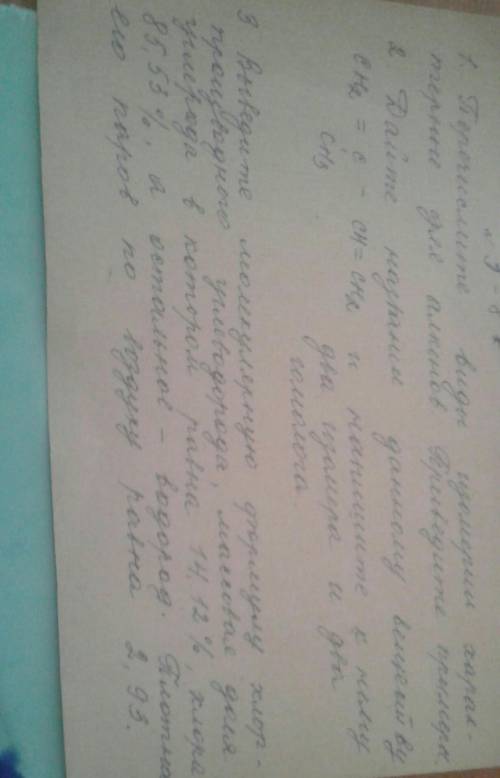 1. Перечислите виды изомерии харак-
терные для алкинов Приведите примеры
2 Дайте название данному веществу
CH2 = C - CH = CH2 и напишите к нему
CH3 два изомера и два
гомолога
3 Выведите молекулярную формулу хлор-
производного углеводорода, массовая доля
углерода в котором равна 14,12%, хлора
83,53%, а остальное - водород. Плотно
его паров по воздуху равна 2,93.